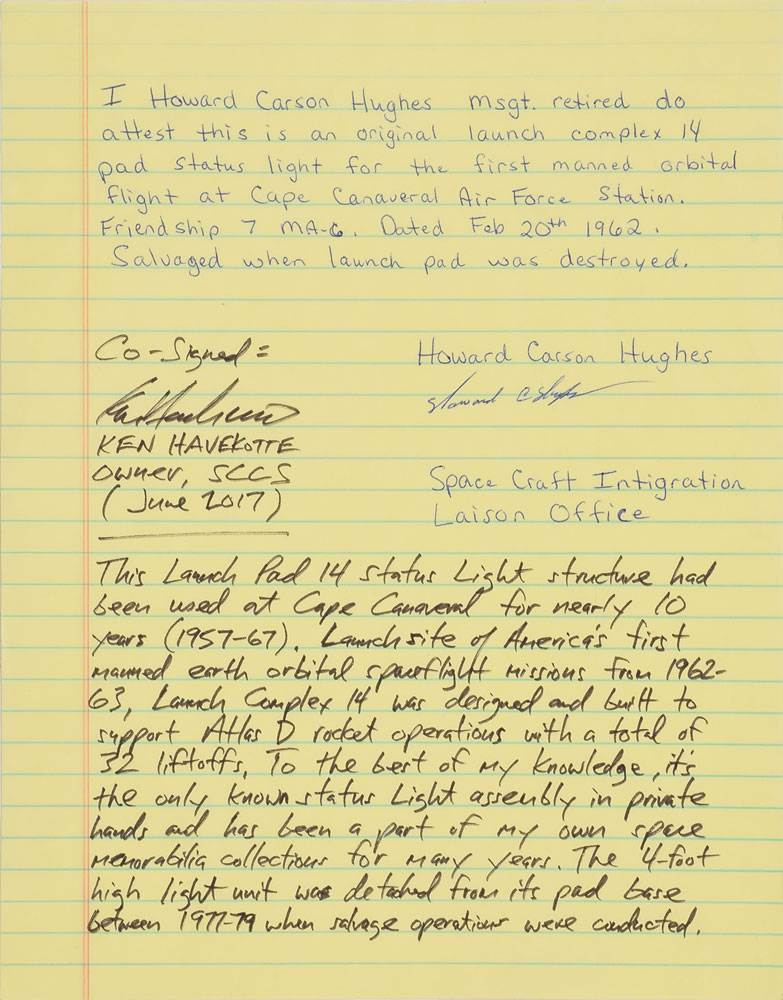 I Howard Carson Hughes msgt. retired do
attest this is an original launch complex 14
pad status light for the first manned orbital
flight at Cape Canaveral Air Force Station.
Friendship 7 MA-6. Dated Feb 20th 1962.
Salvaged when launch pad was destroyed.
Co-Signed =
KEN HAVEKOTTE
Owner, SCCS
(June 2017)
Howard Carson Hughes
Howard C Hughes
Space Craft Intigration
Laison Office
This Launch Pad 14 status Light structure had
been used at Cape Canaveral for nearly 10
years (1957-67). Launch site of America's first
manned earth orbital spaceflight missions from 1962-
63, Launch Complex 14 was designed and built to
support Atlas D rocket operations with a total of
32 liftoffs. To the best of my knowledge, it's
the only known status Light assembly in private
hands and has been a part of my own space
memorabilia collections for many years. The 4-foot
high light unit was detached from its pad base
between 1977-79 when salvage operations were conducted.